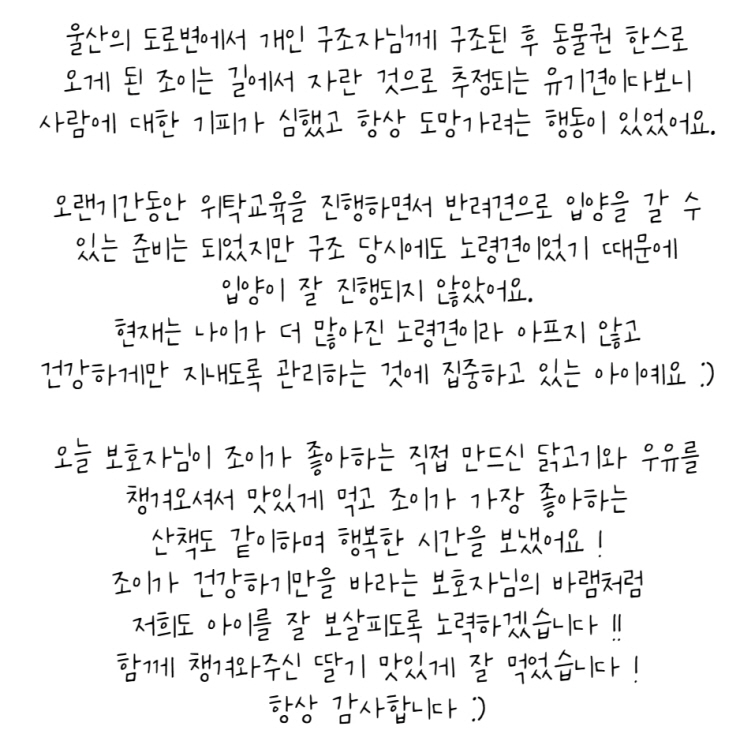 울산의 도로변에서 개인 구조자님께 구조된 후 동물권 한스로
오게 된 조이는 길에서 자란 것으로 추정되는 유기견이다보니
사람에 대한 기피가 심했고 항상 도망가려는 행동이 있었어요.
오랜기간동안 위탁교육을 진행하면서 반려견으로 입양을 갈 수
있는 준비는 되었지만 구조 당시에도 노령견이었기 때문에
입양이 잘 진행되지 않았어요.
현재는 나이가 더 많아진 노령견이라 아프지 않고
건강하게만 지내도록 관리하는 것에 집중하고 있는 아이예요 :)
오늘 보호자님이 조이가 좋아하는 직접 만드신 닭고기와 우유를
챙겨오셔서 맛있게 먹고 조이가 가장 좋아하는
산책도 같이하며 행복한 시간을 보냈어요 !
조이가 건강하기만을 바라는 보호자님의 바램처럼
저희도 아이를 잘 보살피도록 노력하겠습니다 !!
함께 챙겨와주신 딸기 맛있게 잘 먹었습니다 !
항상 감사합니다 :)